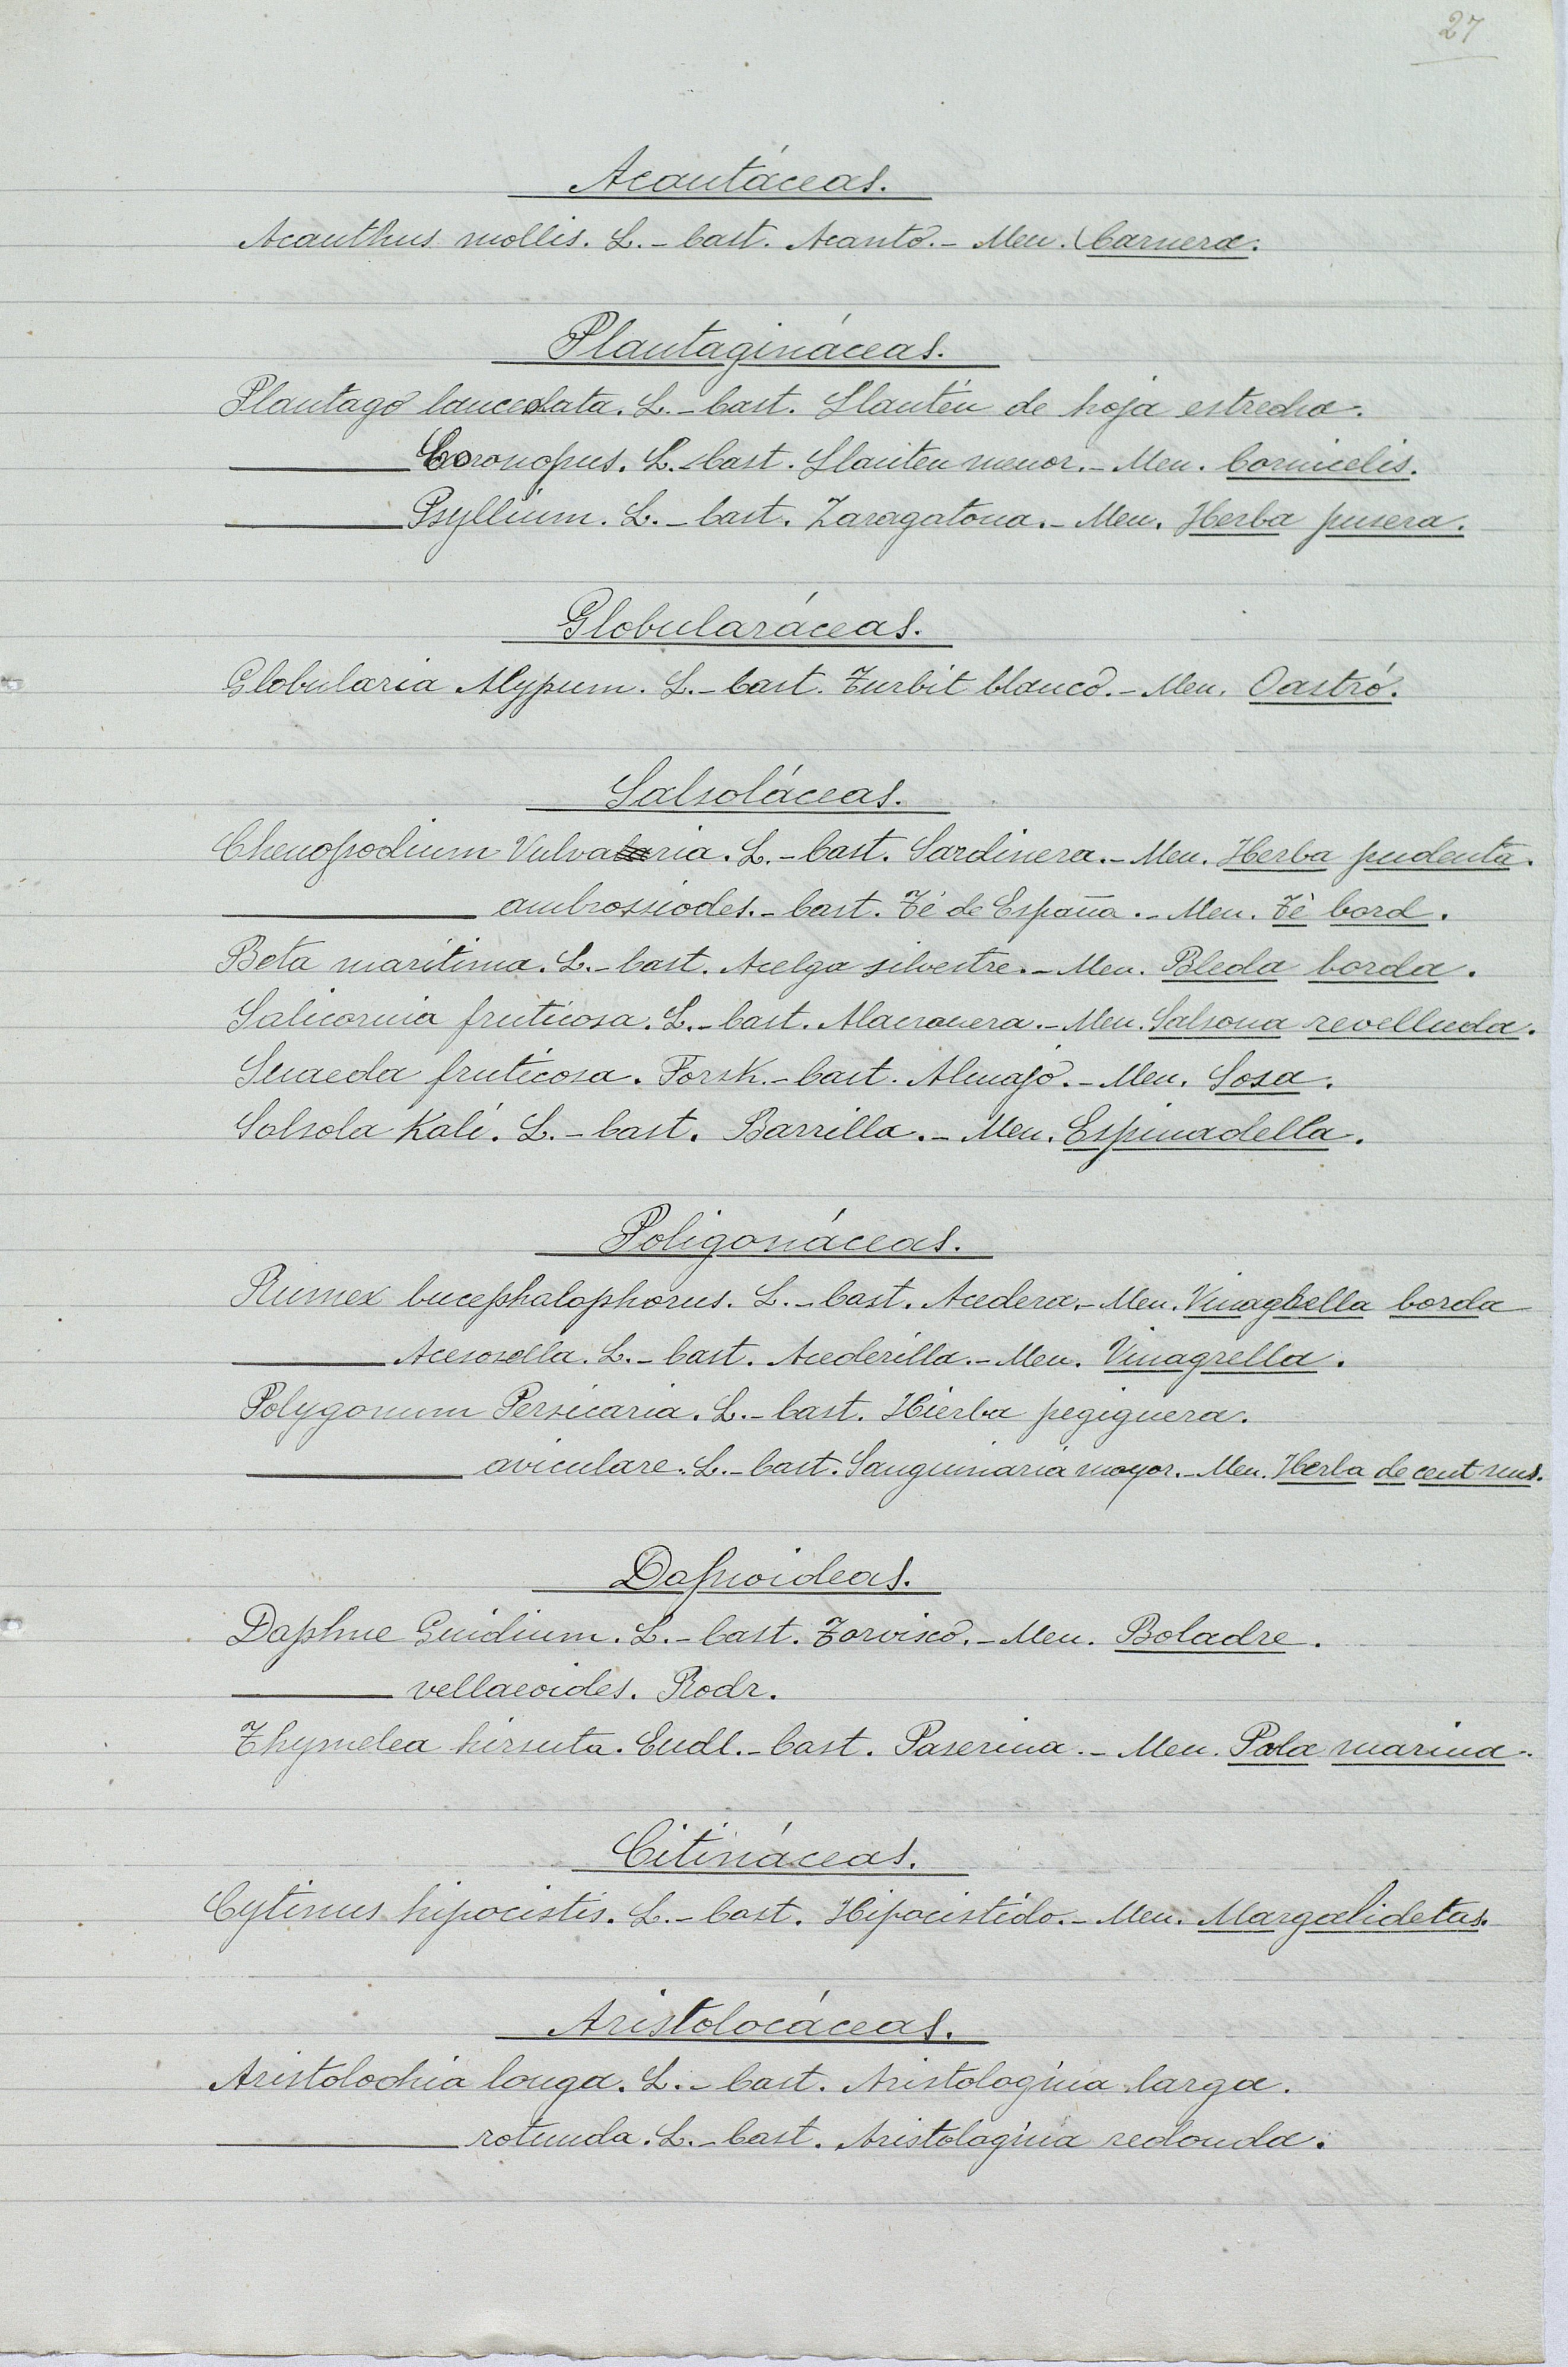 27
Acantáceas.
Acanthus mollis. L. - Cast. Acanto. - Men. Carnera.
Plantagináceas.
Plantago lanceolata. L. - Cast. Llantén de hoja estrecha.
——— Coronopus. L. - Cast. Llanten menor. - Men. Cornicelis.
——— Psyllium. L. - Cast. Zaragatona. - Men. Herba pusera.
Globularáceas.
Globularia Alypum. L. - Cast. Turbit blanco. - Men. Oastró.
Salsoláceas.
Chenopodium Vulvaria. L. - Cast. Sardinera. - Men. Herba pudenta.
——— ambrossiodes. - Cast. Té de España. - Men. Tè bord.
Beta maritima. L. - Cast. Acelga silvestre. - Men. Bleda borda.
Salicornia fruticosa. L. - Cast. Alacranera. - Men. Salsona revelluda.
Suaeda fruticosa. Forsk. - Cast. Almajo. - Men. Sosa.
Salsola Kali. L. - Cast. Barrilla. - Men. Espinadella.
Poligonáceas.
Rumex bucephalophorus. L. - Cast. Acedera. - Men. Vinagrella borda
——— Acesosella. L. - Cast. Acederilla. - Men. Vinagrella.
Polygonum Persicaria. L. - Cast. Hierba pegiguera.
——— aviculare. L. - Cast. Sanguinaria mayor. - Men. Herba de cent nus.
Dafnoideas.
Daphne Gnidium. L. - Cast. Torvisco. - Men. Boladre.
——— vellaeoides. Rodr.
Thymelea hirsuta. Endl. - Cast. Paserina. - Men. Pala marina.
Citináceas.
Cytinus hipocistis. L. - Cast. Hipocistido. - Men. Margalidetas.
Aristolocáceas.
Aristolochia longa. L. - Cast. Aristologuia larga.
——— rotunda. L. - Cast. Aristologuia redonda.